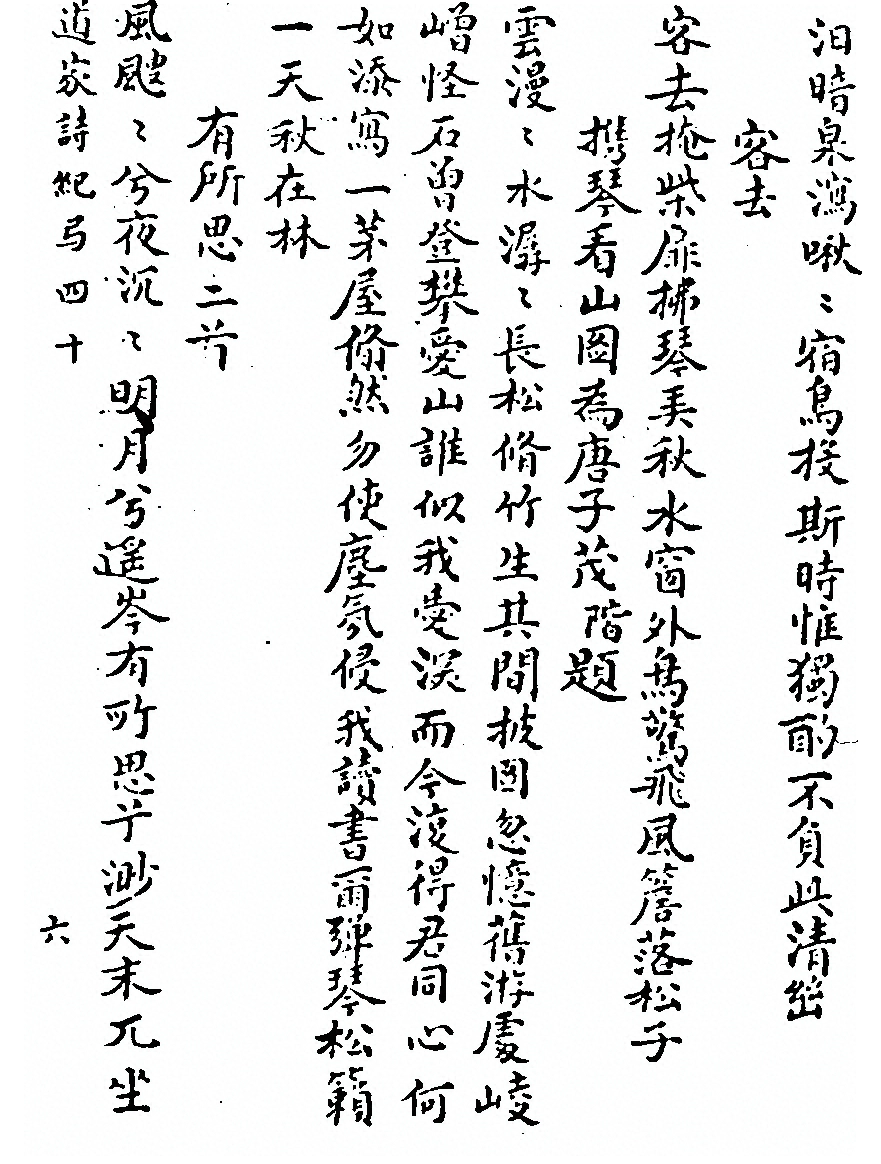 汨暗泉瀉啾〻宿鳥投斯時惟獨酌不負此清幽
客去
客去掩柴扉拂琴美秋水窗外鳥驚飛風簷落松子
攜琴看山圖為唐子茂階題
雲漫〻水潺〻長松脩竹生其間披圖忽憶舊游處崚
嶒怪石曽登攀愛山誰似我愛深而今復得君同心何
如添寫一茅屋翛然勿使塵氛侵我讀書爾彈琴松籟
一天秋在林
有所思二首
風颼〻兮夜沉〻明月兮遥岑有所思兮渺天末兀坐
道家詩紀弓四十
六